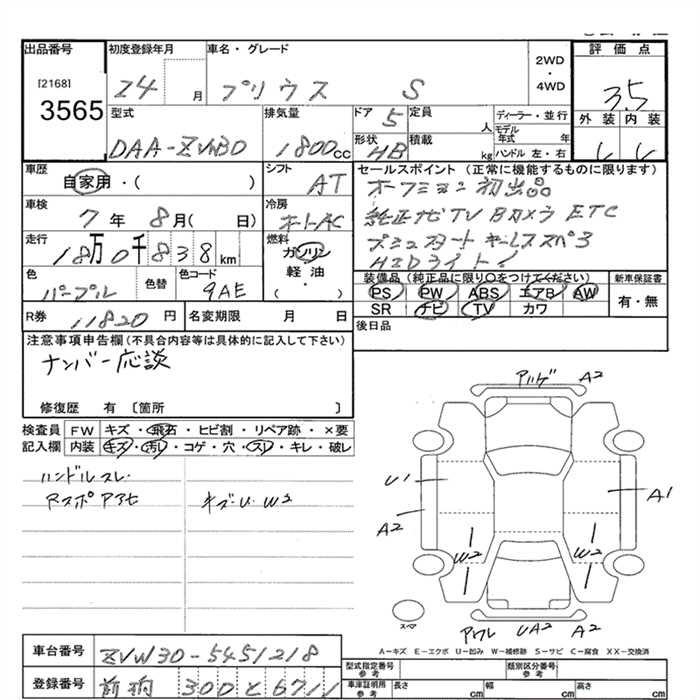 出品番号 初度登録年月 車名・グレード 評価点
[2168] 3565 24 月 プリウス S 2WD・4WD 3.5
型式 排気量 ドア 5 定員 人 ディーラー・並行 外装 内装
DAA-ZVW30 1800cc 形状 HB 積載 kg モデル年式 年 ハンドル 左・右
車歴 シフト セールスポイント (正常に機能するものに限ります)
自家用・( ) AT オークション初出品
車検 冷房 純正ナビTV Bカメラ ETC
7年 8月( 日) オートAC プッシュスタート キーレススペア3
走行 燃料 HIDライト!
18万0千838km ガソリン 軽油・( )
色 色替 色コード 装備品 (純正品に限り○をつけてください) 新車保証書
パープル 9AE PS PW ABS エアB AW 有・無
SR ナビ TV カワ
R券 11820円 名変期限 月 日 後日品
注意事項申告欄 (不具合内容等は具体的に記入して下さい)
ナンバー応談
修復歴 有 〔箇所 〕
検査員記入欄 FW キズ・飛石・ヒビ割・リペア跡・×要
内装 キズ・汚レ・コゲ・穴・スレ・キレ・破レ
ハンドルスレ
キズ・U W2
A2
U1
A2
A1
W2
W2
スペア
UA2
A2
A-キズ E-エクボ U-凹み W-補修跡 S-サビ C-腐食 XX-交換済
車台番号 ZVW30-5451218
登録番号 300 と 6711
型式指定番号 参考 類別区分番号 参考
車庫証明用 参考 長さ cm 幅 cm 高さ cm